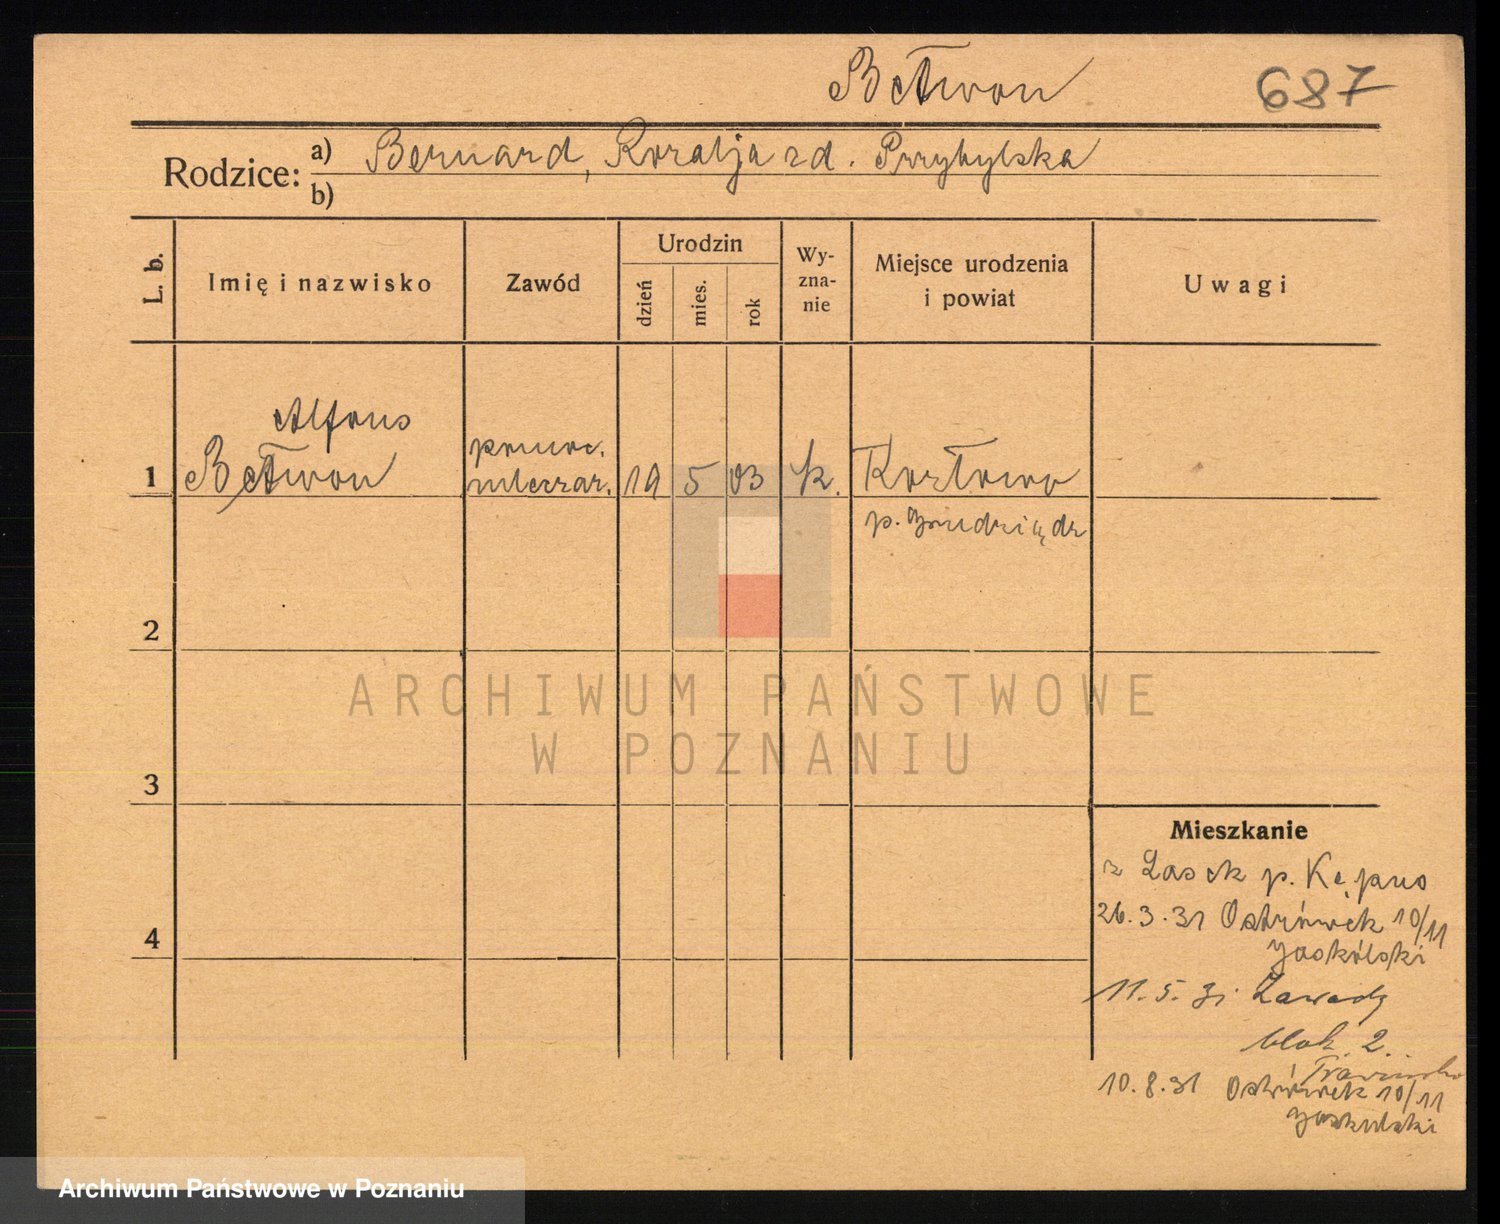 Betwon
687
Rodzice: a) Bernard, Rozalja zd. Przybylska
b)
L. b.
Imię i nazwisko
Zawód
Urodzin
dzień
mies.
rok
Wy-
zna-
nie
Miejsce urodzenia
i powiat
Uwagi
Alfons
1 Betwon
pomoc.
mleczar.
19 5 03 k.
Kozłowo
p. Grudziądz
2
3
4
ARCHIWUM PAŃSTWOWE
W POZNANIU
Mieszkanie
z Lasek p. Kępno
26.3.31 Ostrówek 10/11
Jaskólski
11.5.31 Zawady
blok. 2.
10.8.31 Ostrówek 10/11
Jaskulski
Archiwum Państwowe w Poznaniu